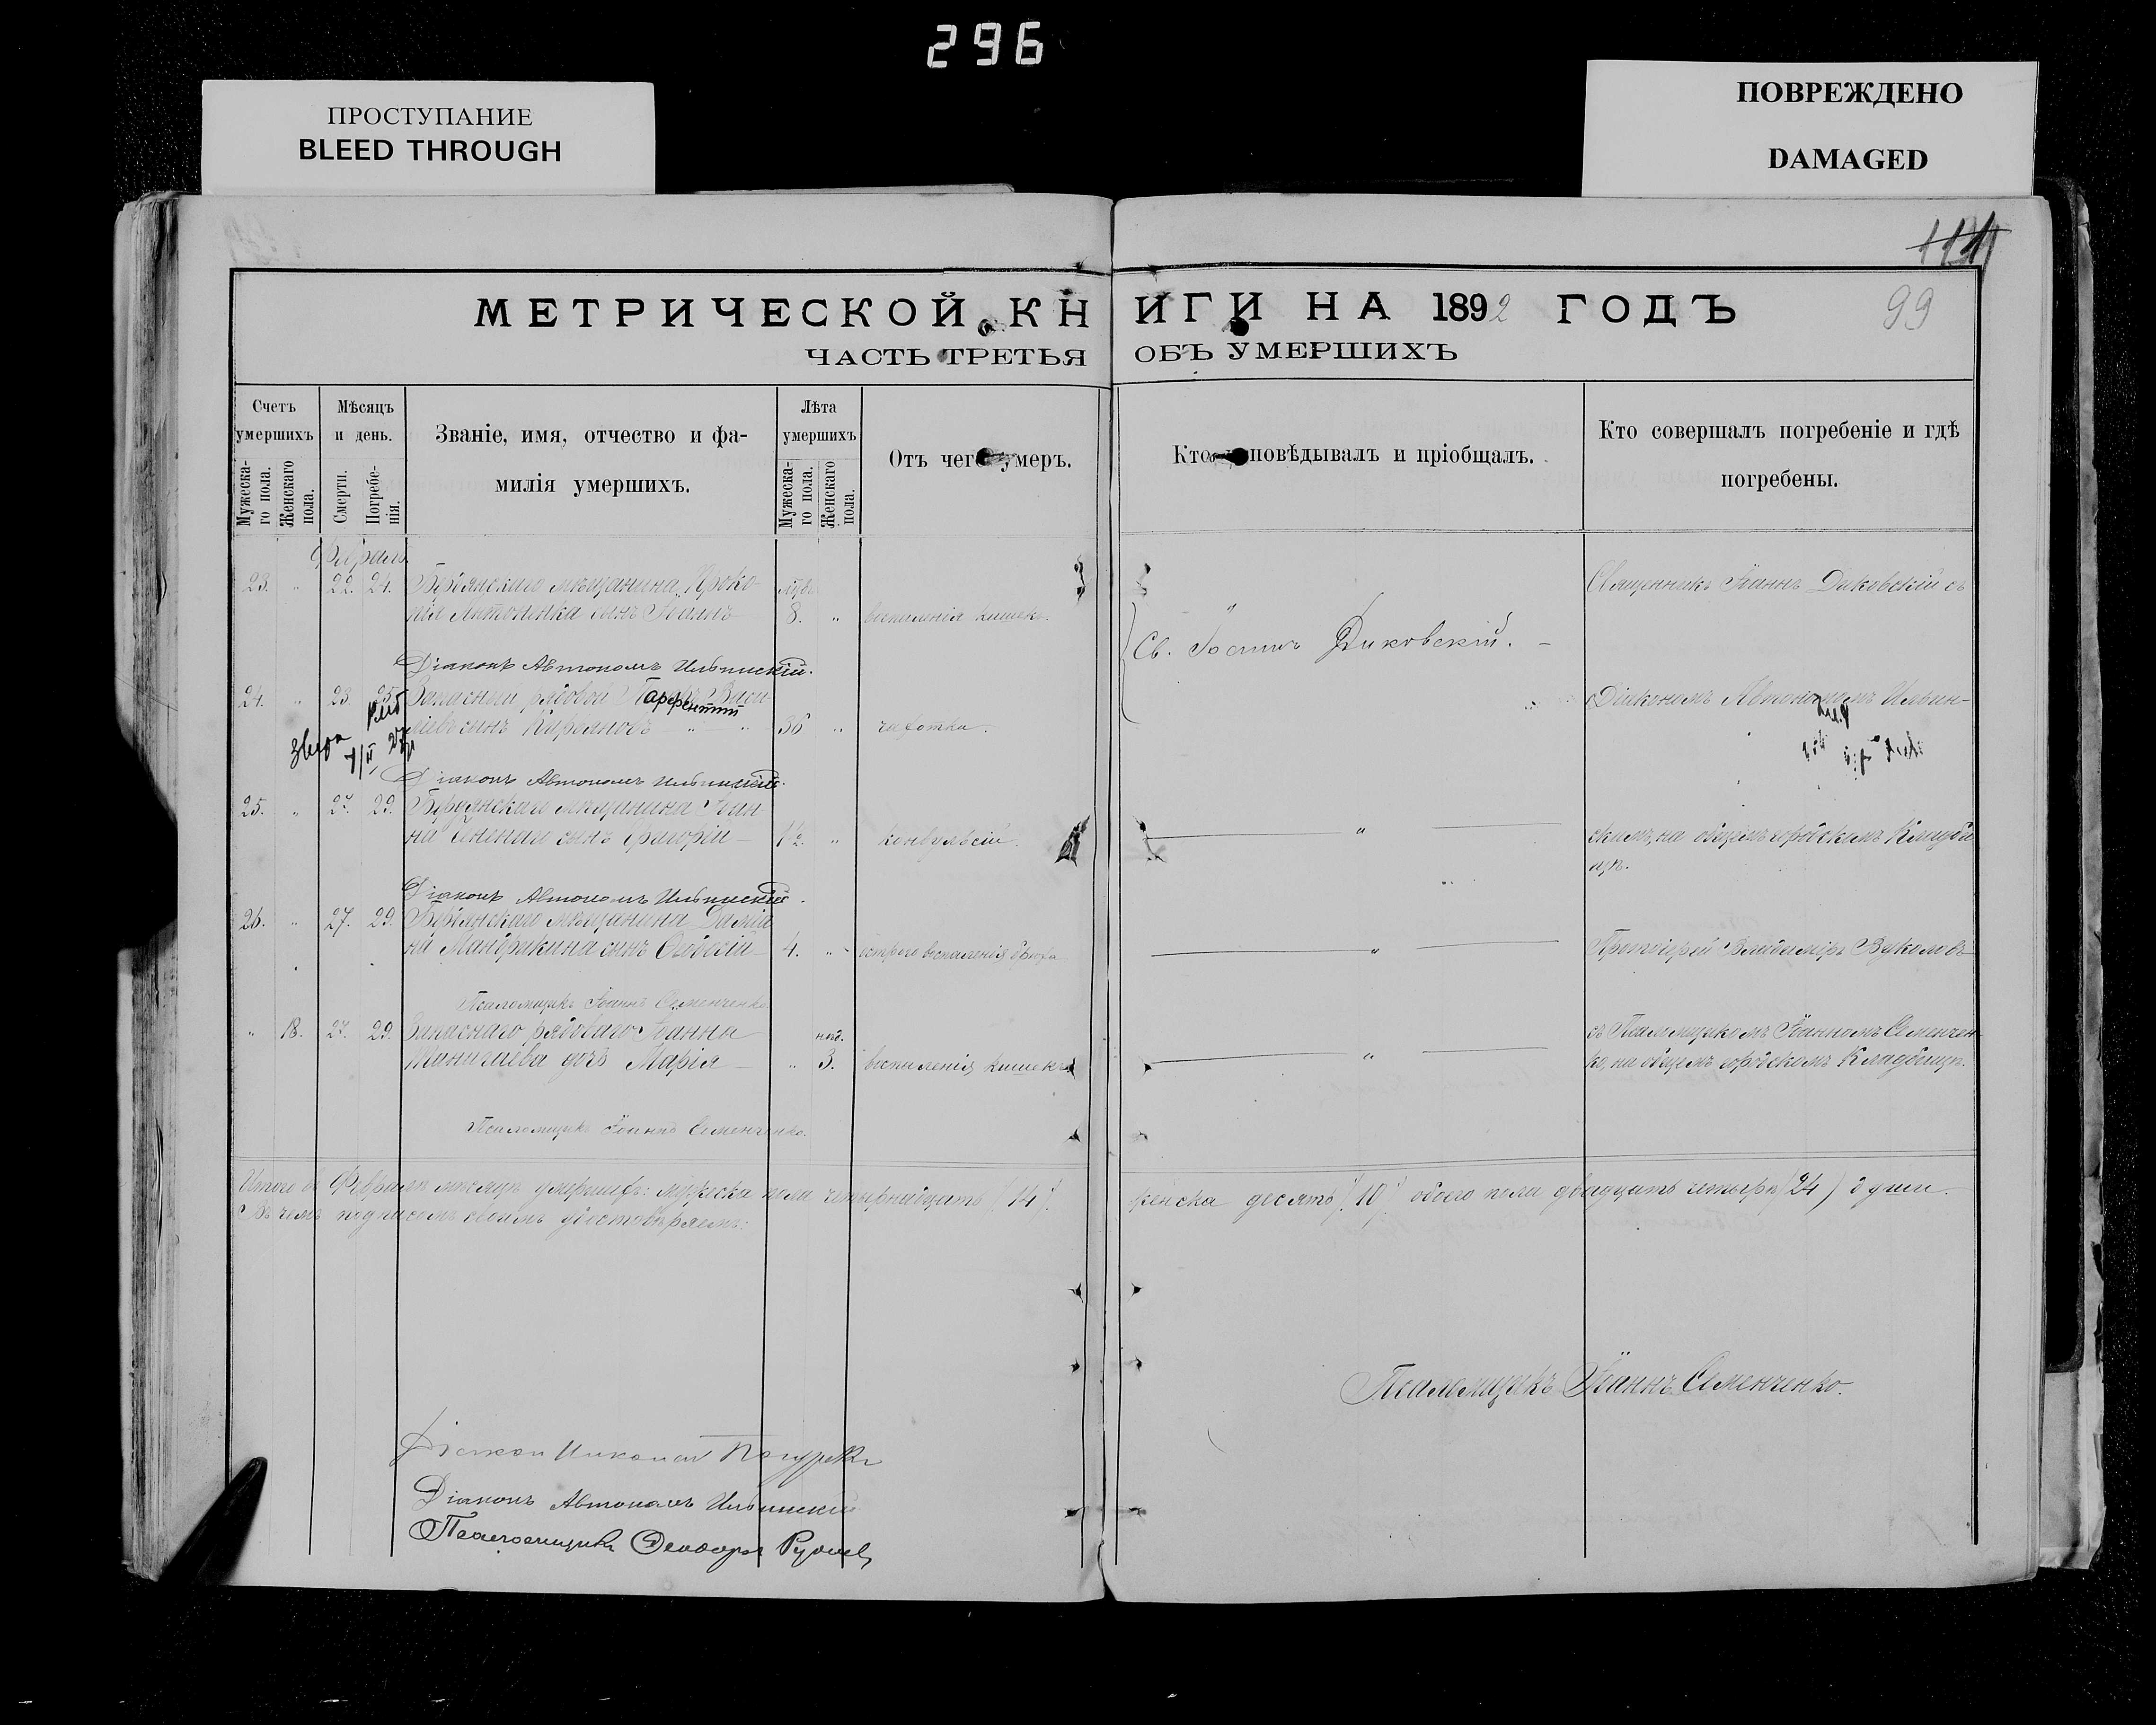 296
ПРОСТУПАНИЕ
BLEED THROUGH
ПОВРЕЖДЕНО
DAMAGED
99
МЕТРИЧЕСКОЙ КНИГИ НА 1892 ГОДЪ
ЧАСТЬ ТРЕТЬЯ ОБЪ УМЕРШИХЪ
Счетъ умершихъ
Мужеска-го пола.
Женскаго пола.
Мѣсяцъ и день.
Смерти.
Погребе-нія.
Званіе, имя, отчество и фа-
милія умершихъ.
Лѣта умершихъ
Мужеска-го пола.
Женскаго пола.
Отъ чего умеръ.
Кто повѣдывалъ и пріобщалъ.
Кто совершалъ погребеніе и гдѣ
погребены.
Февраль
23. " 22. 24. Бердянскаго мѣщанина Проко-
пія Антоненка сынъ Іоаннъ 8. " воспаленія кишекъ.
Священникъ Іоаннъ Диковскій съ
Св. Іоаннъ Диковскій.
Діаконъ Автономъ Ильинскій.
24. " 23. 25. Запасный рядовой Василь-
евъ сынъ 36 " чахотка.
Діакономъ Автономомъ Ильин-
Діаконъ Автономъ Ильинскій.
25. " 27. 29. Бердянскаго мѣщанина Іоан-
на сынъ Григорій 1½. " конвульсій.
скимъ, на общемъ городскомъ Кладби
щѣ.
Діаконъ Автономъ Ильинскій.
26. " 27. 29. Бердянскаго мѣщанина Даміа
на Мандрыкина сынъ Ѳеодосій 4. " остраго воспаленія брюха
Протоіерей Владиміръ Вуколовъ
Псаломщикъ Іоаннъ Семенченко.
" 18. 27. 29. Запаснаго рядоваго Іоанна нед.
дочь Марія " 3. воспаленія кишекъ
съ Псаломщикомъ Іоанномъ Семенчен-
ко, на общемъ городскомъ Кладбищѣ.
Псаломщикъ Іоаннъ Семенченко.
Итого въ Февралѣ мѣсяцѣ умершихъ: мужеска пола четырнадцать (14) женска десять (10) обоего пола двадцать четыре (24) души.
Въ чемъ подписомъ своимъ удостовѣряемъ:
Псаломщикъ Іоаннъ Семенченко.
Діаконъ Николай
Діаконъ Автономъ Ильинскій
Псаломщикъ Ѳеодоръ